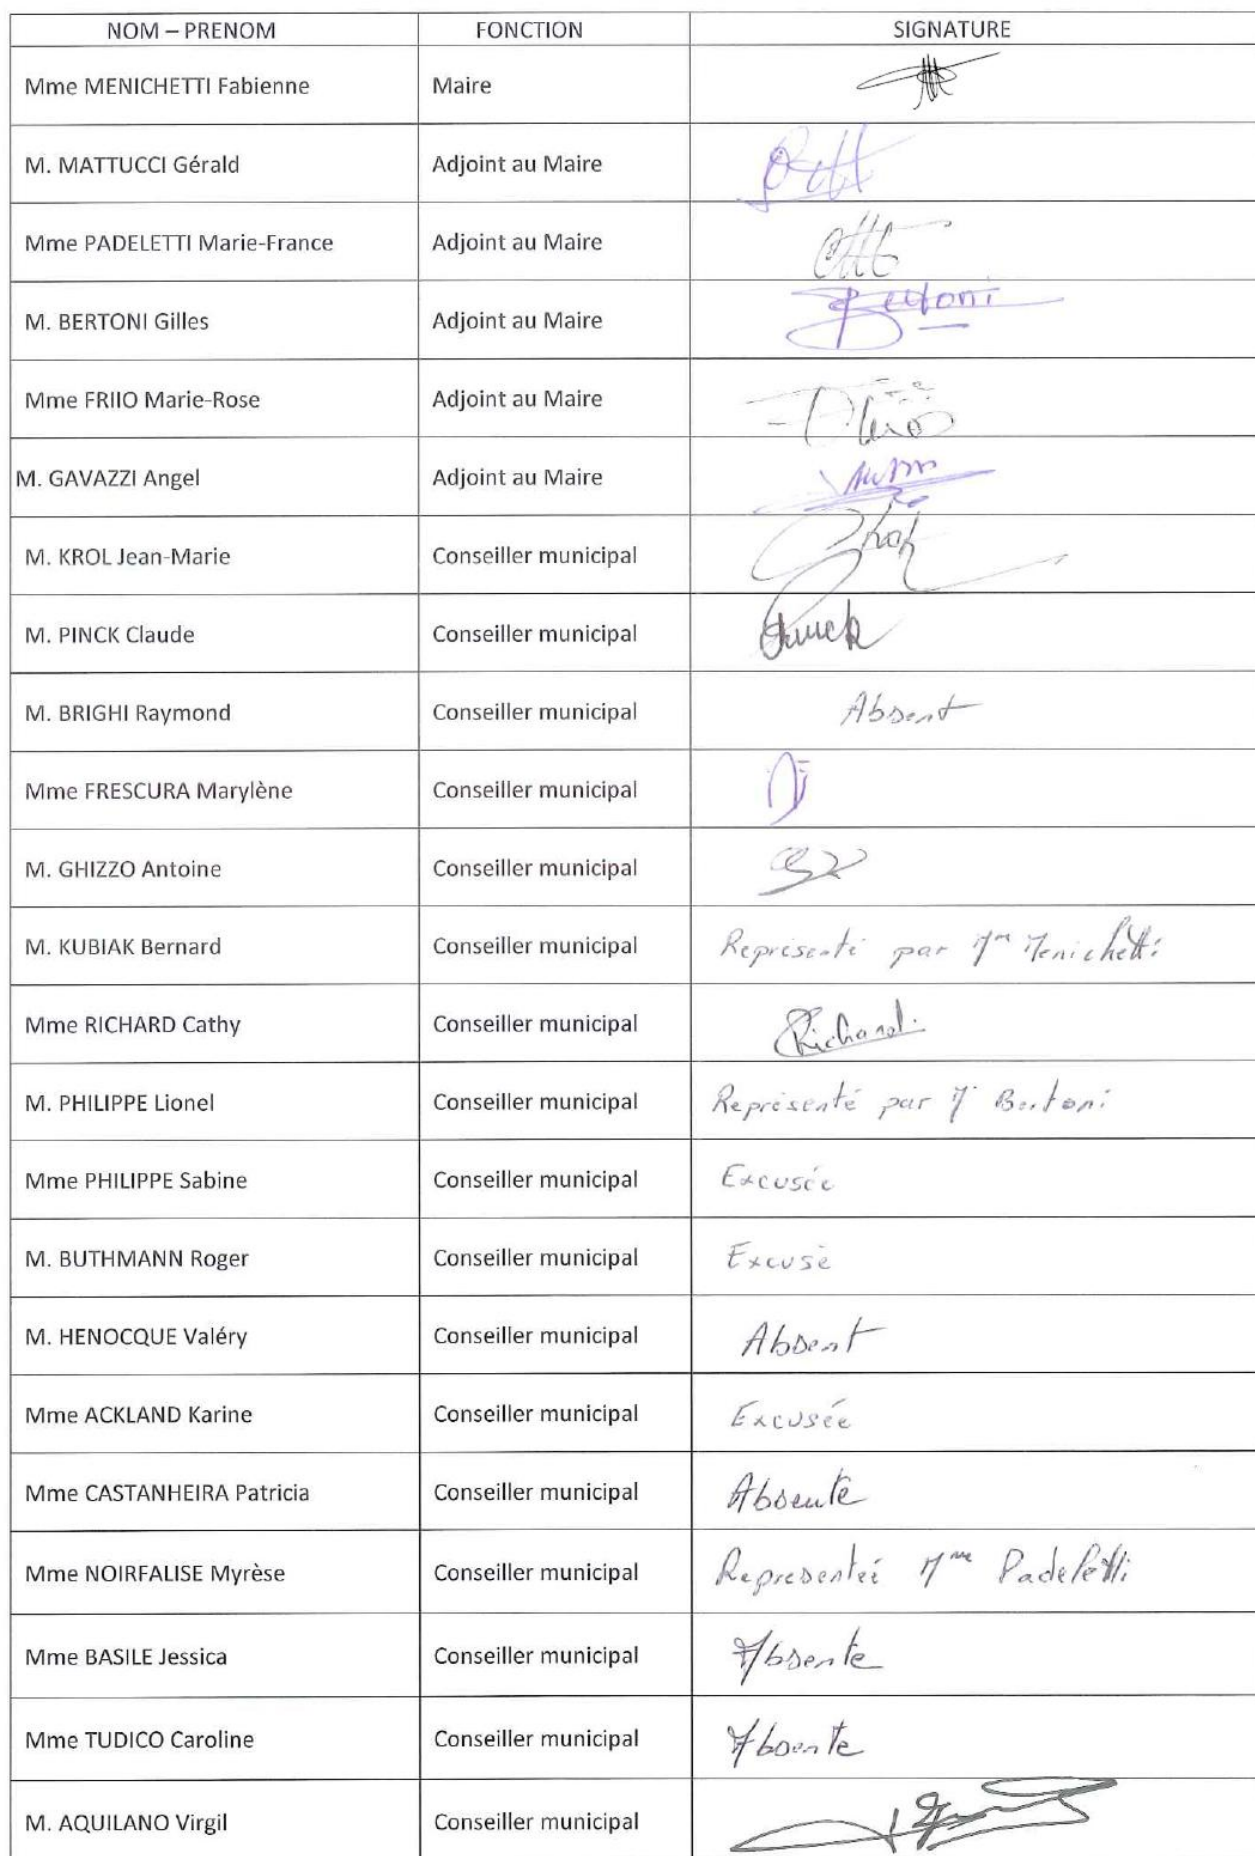 NOM – PRENOM FONCTION SIGNATURE
Mme MENICHETTI Fabienne Maire
M. MATTUCCI Gérald Adjoint au Maire
Mme PADELETTI Marie-France Adjoint au Maire
M. BERTONI Gilles Adjoint au Maire Bertoni
Mme FRIIO Marie-Rose Adjoint au Maire
M. GAVAZZI Angel Adjoint au Maire
M. KROL Jean-Marie Conseiller municipal
M. PINCK Claude Conseiller municipal Pinck
M. BRIGHI Raymond Conseiller municipal Absent
Mme FRESCURA Marylène Conseiller municipal
M. GHIZZO Antoine Conseiller municipal
M. KUBIAK Bernard Conseiller municipal Représenté par Mme Menichetti
Mme RICHARD Cathy Conseiller municipal Richard
M. PHILIPPE Lionel Conseiller municipal Représenté par M. Bertoni
Mme PHILIPPE Sabine Conseiller municipal Excusée
M. BUTHMANN Roger Conseiller municipal Excusé
M. HENOCQUE Valéry Conseiller municipal Absent
Mme ACKLAND Karine Conseiller municipal Excusée
Mme CASTANHEIRA Patricia Conseiller municipal Absente
Mme NOIRFALISE Myrèse Conseiller municipal Representée Mme Padeletti
Mme BASILE Jessica Conseiller municipal Absente
Mme TUDICO Caroline Conseiller municipal Absente
M. AQUILANO Virgil Conseiller municipal